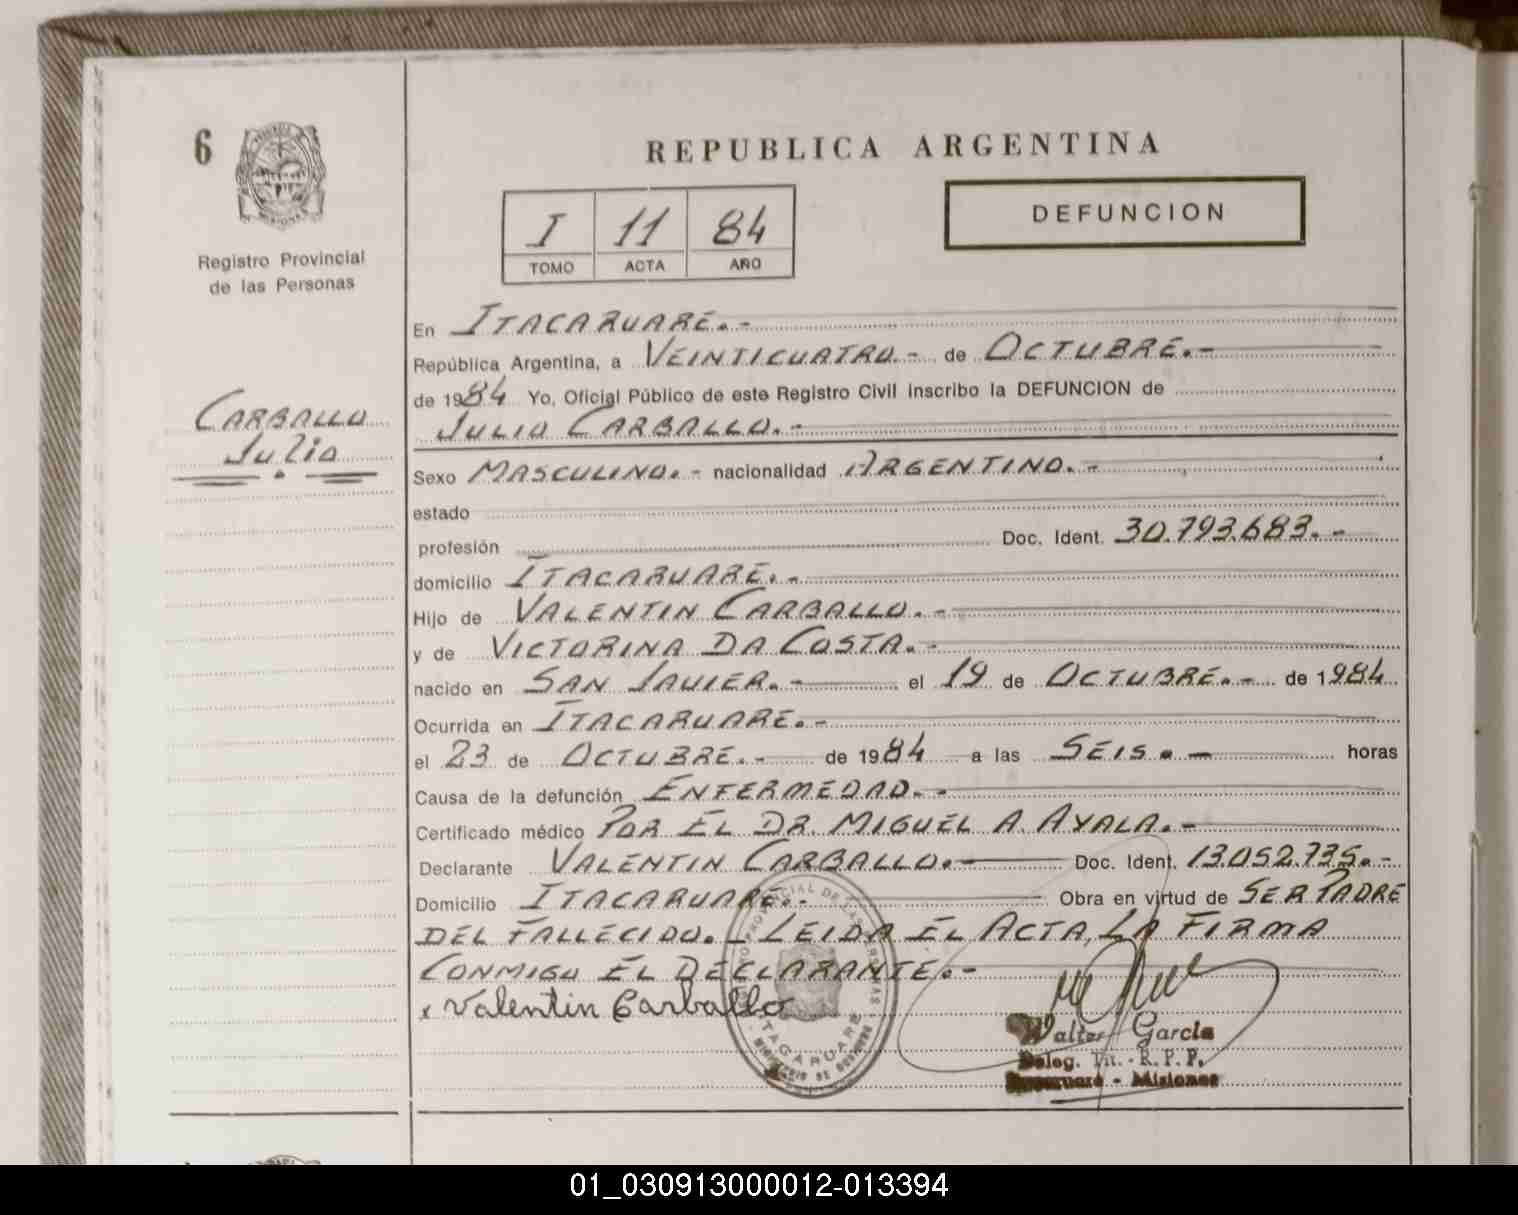 6
REPUBLICA ARGENTINA
DEFUNCION
I 11 84
TOMO ACTA AÑO
Registro Provincial
de las Personas
CARBALLO
Julio
En ITACARUARE.-
República Argentina, a VEINTICUATRO.- de OCTUBRE.-
de 1984 Yo, Oficial Público de este Registro Civil inscribo la DEFUNCION de
JULIO CARBALLO.-
Sexo MASCULINO.- nacionalidad ARGENTINO.-
estado
profesión Doc. Ident. 30.793.683.-
domicilio ITACARUARE.-
Hijo de VALENTIN CARBALLO.-
y de VICTORINA DA COSTA.-
nacido en SAN JAVIER.- el 19 de OCTUBRE.- de 1984
Ocurrida en ITACARUARE.-
el 23 de OCTUBRE.- de 1984 a las SEIS.- horas
Causa de la defunción ENFERMEDAD.-
Certificado médico POR EL DR. MIGUEL A. AYALA.-
Declarante VALENTIN CARBALLO.- Doc. Ident. 13.052.735.-
Domicilio ITACARUARE.- Obra en virtud de SER PADRE
DEL FALLECIDO.- LEIDA EL ACTA, LA FIRMA
CONMIGO EL DECLARANTE.-
x Valentin Carballo
Walter Garcia
Deleg. Tit. - R. P. P.
Itacaruaré - Misiones
01_030913000012-013394